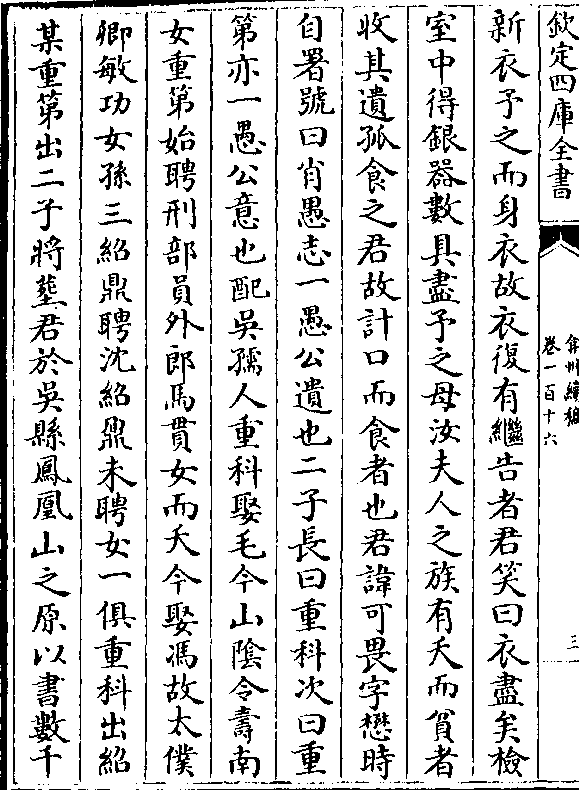 欽定四庫全書
弇州續稿
卷一百十六
三
新衣予之而身衣故衣復有繼告者君笑曰衣盡矣檢
室中得銀器數具盡予之母汝夫人之族有夭而貧者
收其遺孤食之君故計口而食者也君諱可畏字懋時
自署號曰肖愚志一愚公遺也二子長曰重科次曰重
第亦一愚公意也配吳孺人重科娶毛今山隂令壽南
女重第始聘刑部員外郎馬貫女而夭今娶馮故太僕
卿敏功女孫三紹鼎聘沈紹鼐未聘女一俱重科出紹
某重第出二子將塟君於吳縣鳳凰山之原以書數千